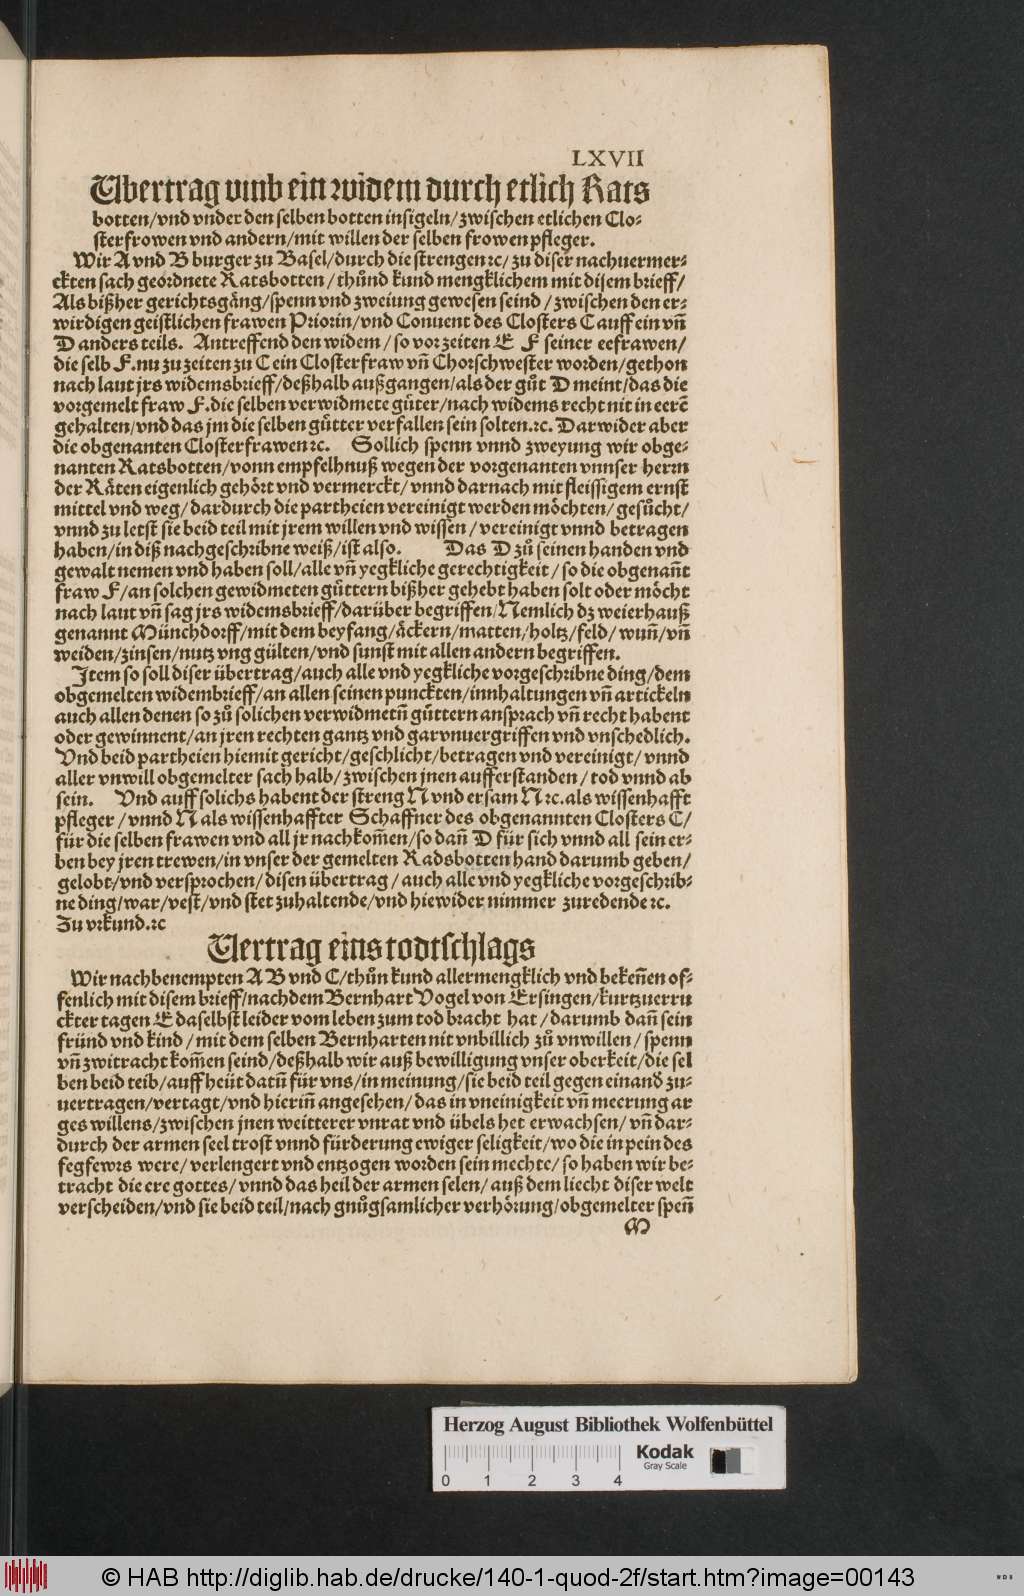 LXVII
Ubertrag vmb ein widem durch etlich Rats
botten/vnd vnder den selben botten insigeln/zwischen etlichen Clo-
sterfrowen vnd andern/mit willen der selben frowen pfleger.
Wir A vnd B burger zu Basel/durch die strengen ꝛc/zu diser nachuermer-
ckten sach geordnete Ratsbotten/thůnd kund mengklichem mit disem brieff/
Als bißher gerichtsgäng/spenn vnd zweiung gewesen seind/zwischen den er-
wirdigen geistlichen frawen Priorin/vnd Conuent des Closters C auff ein vñ
D anders teils. Antreffend den widem/so vor zeiten E F seiner eefrawen/
die selb F.nu zu zeiten zu C ein Closterfraw vñ Chorschwester worden/gethon
nach laut jrs widemsbrieff/deßhalb außgangen/als der gůt D meint/das die
vorgemelt fraw F.die selben verwidmete gůter/nach widems recht nit in eerẽ
gehalten/vnd das jm die selben gůtter verfallen sein solten.ꝛc. Darwider aber
die obgenanten Closterfrawen ꝛc. Sollich spenn vnnd zweyung wir obge-
nanten Ratsbotten/vonn empfelhnuß wegen der vorgenanten vnnser herrn
der Räten eigenlich gehört vnd vermerckt/vnnd darnach mit fleissigem ernst
mittel vnd weg/dardurch die partheien vereinigt werden möchten/gesůcht/
vnnd zu letst sie beid teil mit jrem willen vnd wissen/vereinigt vnnd betragen
haben/in diß nachgeschribne weiß/ist also. Das D zů seinen handen vnd
gewalt nemen vnd haben soll/alle vñ yegkliche gerechtigkeit/so die obgenañt
fraw F/an solchen gewidmeten gůttern bißher gehebt haben solt oder möcht
nach laut vñ sag jrs widemsbrieff/darüber begriffen/Nemlich dz weierhauß
genannt Münchdorff/mit dem beyfang/äckern/matten/holtz/feld/wuñ/vñ
weiden/zinsen/nutzvng gülten/vnd sunst mit allen andern begriffen.
Item so soll diser übertrag/auch alle vnd yegkliche vorgeschribne ding/dem
obgemelten widembrieff/an allen seinen punckten/innhaltungen vñ artickeln
auch allen denen so zů solichen verwidmetñ gůttern ansprach vñ recht habent
oder gewinnent/an jren rechten gantz vnd gar vnuergriffen vnd vnschedlich.
Vnd beid partheien hiemit gericht/geschlicht/betragen vnd vereinigt/vnnd
aller vnwill obgemelter sach halb/zwischen jnen aufferstanden/tod vnnd ab
sein. Vnd auff solichs habent der streng N vnd ersam N ꝛc.als wissenhafft
pfleger/vnnd N als wissenhaffter Schaffner des obgenannten Closters C/
für die selben frawen vnd all jr nachkom̃en/so dañ D für sich vnnd all sein er-
ben bey jren trewen/in vnser der gemelten Radsbotten hand darumb geben/
gelobt/vnd versprochen/disen übertrag/auch alle vnd yegkliche vorgeschrib-
ne ding/war/vest/vnd stet zuhaltende/vnd hiewider nimmer zuredende ꝛc.
Zu vrkund.ꝛc
Vertrag eins todtschlags
Wir nachbenempten A B vnd C/thůn kund allermengklich vnd bekeñen of-
fenlich mit disem brieff/nachdem Bernhart Vogel von Ersingen/kurtzuerru
ckter tagen E daselbst leider vom leben zum tod bracht hat/darumb dañ sein
fründ vnd kind/mit dem selben Bernharten nit vnbillich zů vnwillen/spenn
vñ zwitracht kom̃en seind/deßhalb wir auß bewilligung vnser oberkeit/die sel
ben beid teib/auff heüt datũ für vns/in meinung/sie beid teil gegen einand̕ zu-
uertragen/vertagt/vnd hieriñ angesehen/das in vneinigkeit vñ meerung ar
ges willens/zwischen jnen weitterer vnrat vnd übels het erwachsen/vñ dar-
durch der armen seel trost vnnd fürderung ewiger seligkeit/wo die in pein des
fegfewrs were/verlengert vnd entzogen worden sein mechte/so haben wir be-
tracht die ere gottes/vnnd das heil der armen selen/auß dem liecht diser welt
verscheiden/vnd sie beid teil/nach gnůgsamlicher verhörung/obgemelter speñ
M
Herzog August Bibliothek Wolfenbüttel
Kodak
Gray Scale
0 1 2 3 4
© HAB http://diglib.hab.de/drucke/140-1-quod-2f/start.htm?image=00143